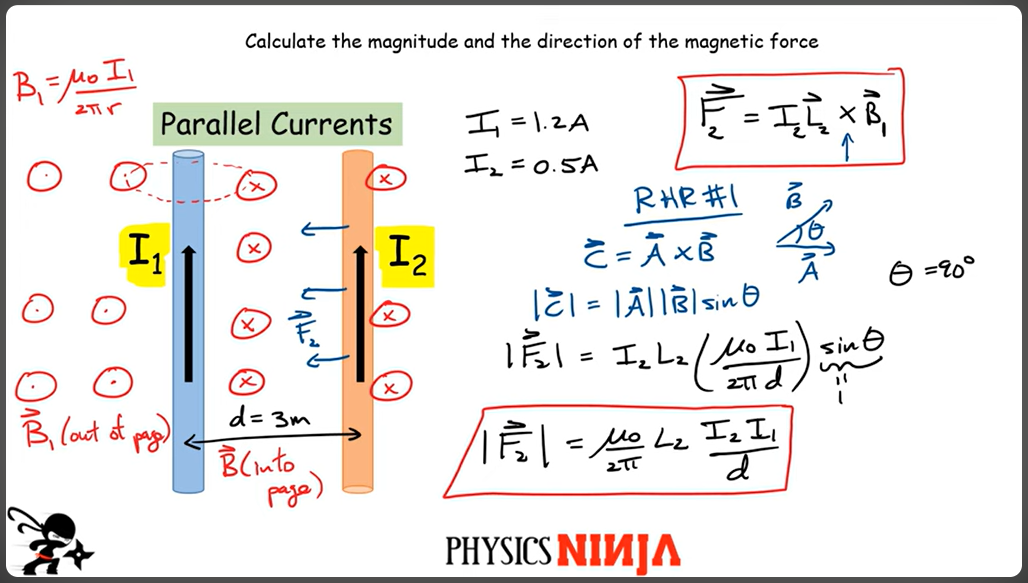 Calculate the magnitude and the direction of the magnetic force
B₁ = μ₀ I₁ / 2π r
Parallel Currents
I₁
I₂
F⃗₂
d = 3m
B⃗₁ (out of page)
B⃗ (into
page)
I₁ = 1.2A
I₂ = 0.5A
F⃗₂ = I₂ L⃗₂ × B⃗₁
RHR #1
C⃗ = A⃗ × B⃗
B⃗
θ
A⃗
θ = 90°
|C⃗| = |A⃗||B⃗| sin θ
|F⃗₂| = I₂ L₂ (μ₀ I₁ / 2π d) sin θ
= 1
|F⃗₂| = μ₀ / 2π L₂ I₂ I₁ / d
PHYSICS NINJA